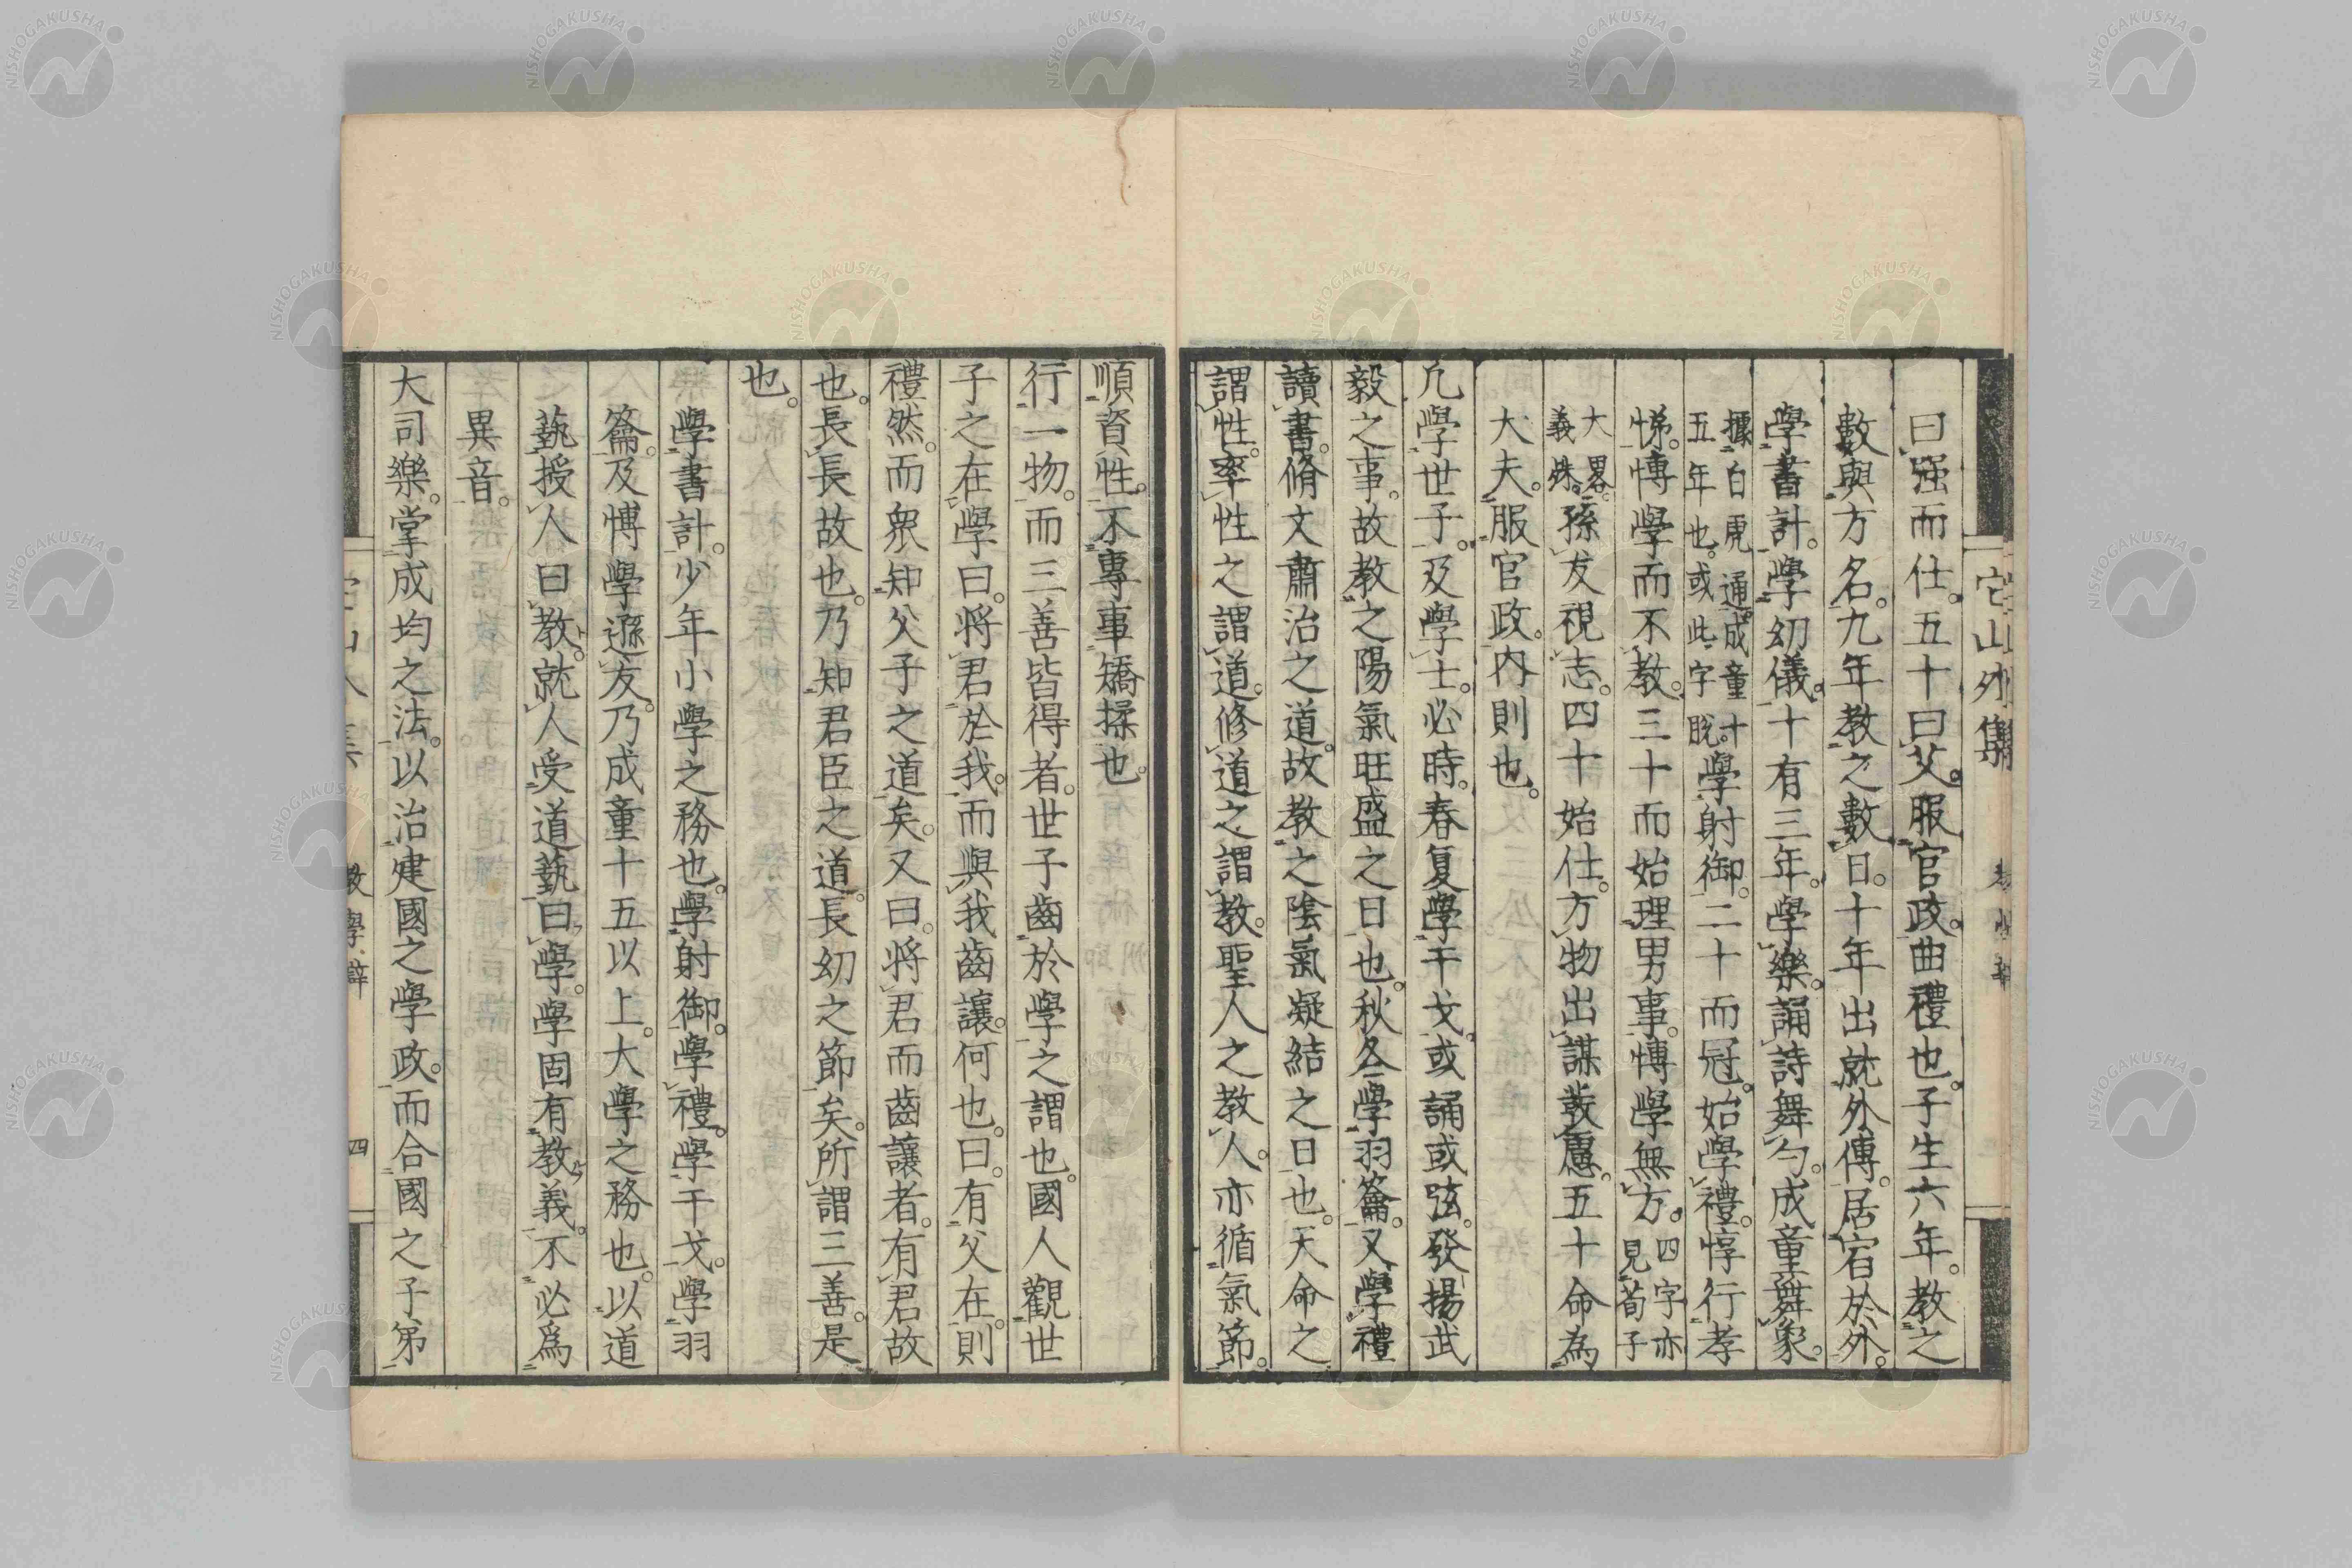 曰强而仕。五十曰艾。服官政。曲禮也。子生六年。教之
數與方名。九年教之數日。十年出就外傅。居宿於外。
學書計。學幼儀。十有三年。學樂。誦詩舞勺。成童舞象。
據白虎通。成童十五年也。或此字脫。學射御。二十而冠。始學禮。惇行孝
悌。博學而不教。三十而始理男事。博學無方。四字亦見荀子
大畧。義殊。孫友視志。四十始仕。方物出謀發慮。五十命為
大夫。服官政。内則也。
凡學世子。及學士。必時。春夏學干戈。或誦或弦。發揚武
毅之事。故教之陽氣旺盛之日也。秋冬學羽籥。又學禮
讀書。脩文肅治之道。故教之陰氣凝結之日也。天命之
謂性。率性之謂道。修道之謂教。聖人之教人。亦循氣節。
它山外集
順資性。不專事矯揉也。
行一物。而三善皆得者。世子齒於學之謂也。國人觀世
子之在學曰。將君於我。而與我齒讓。何也。曰。有父在。則
禮然。而衆知父子之道矣。又曰。將君而齒讓者。有君故
也。長長故也。乃知君臣之道。長幼之節矣。所謂三善。是
也。
學書計。少年小學之務也。學射御。學禮。學干戈。學羽
籥。及博學遜友。乃成童十五以上。大學之務也。以道
藝授人曰教。就人受道藝曰學。學固有教義。不必爲
異音。
大司樂。掌成均之法。以治建國之學政。而合國之子弟
教學辯
四
NISHOGAKUSHA